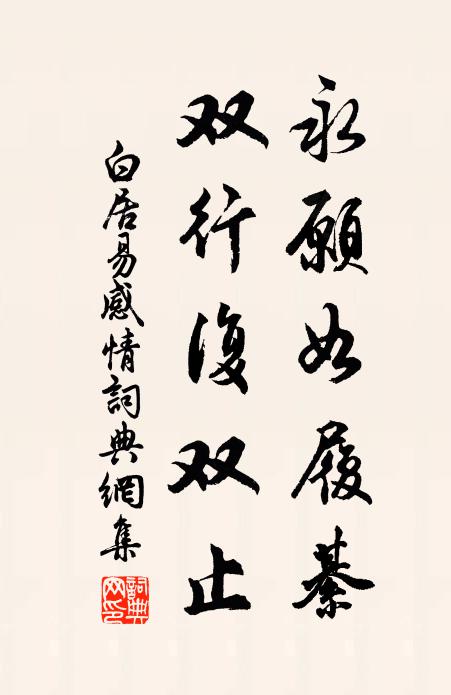 永願如履綦
双行復双止
白居易感情詞典網集
詞典网印